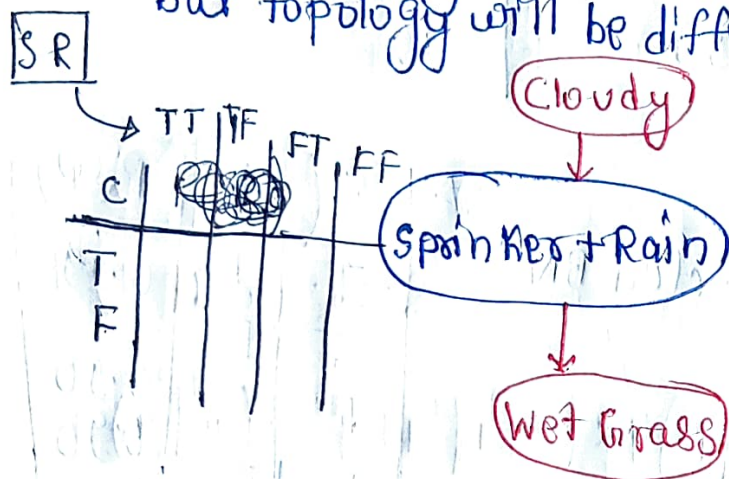 but topology will be diff
S R
Cloudy
TT TF FT FF
C
Sprinker + Rain
T
F
Wet Grass